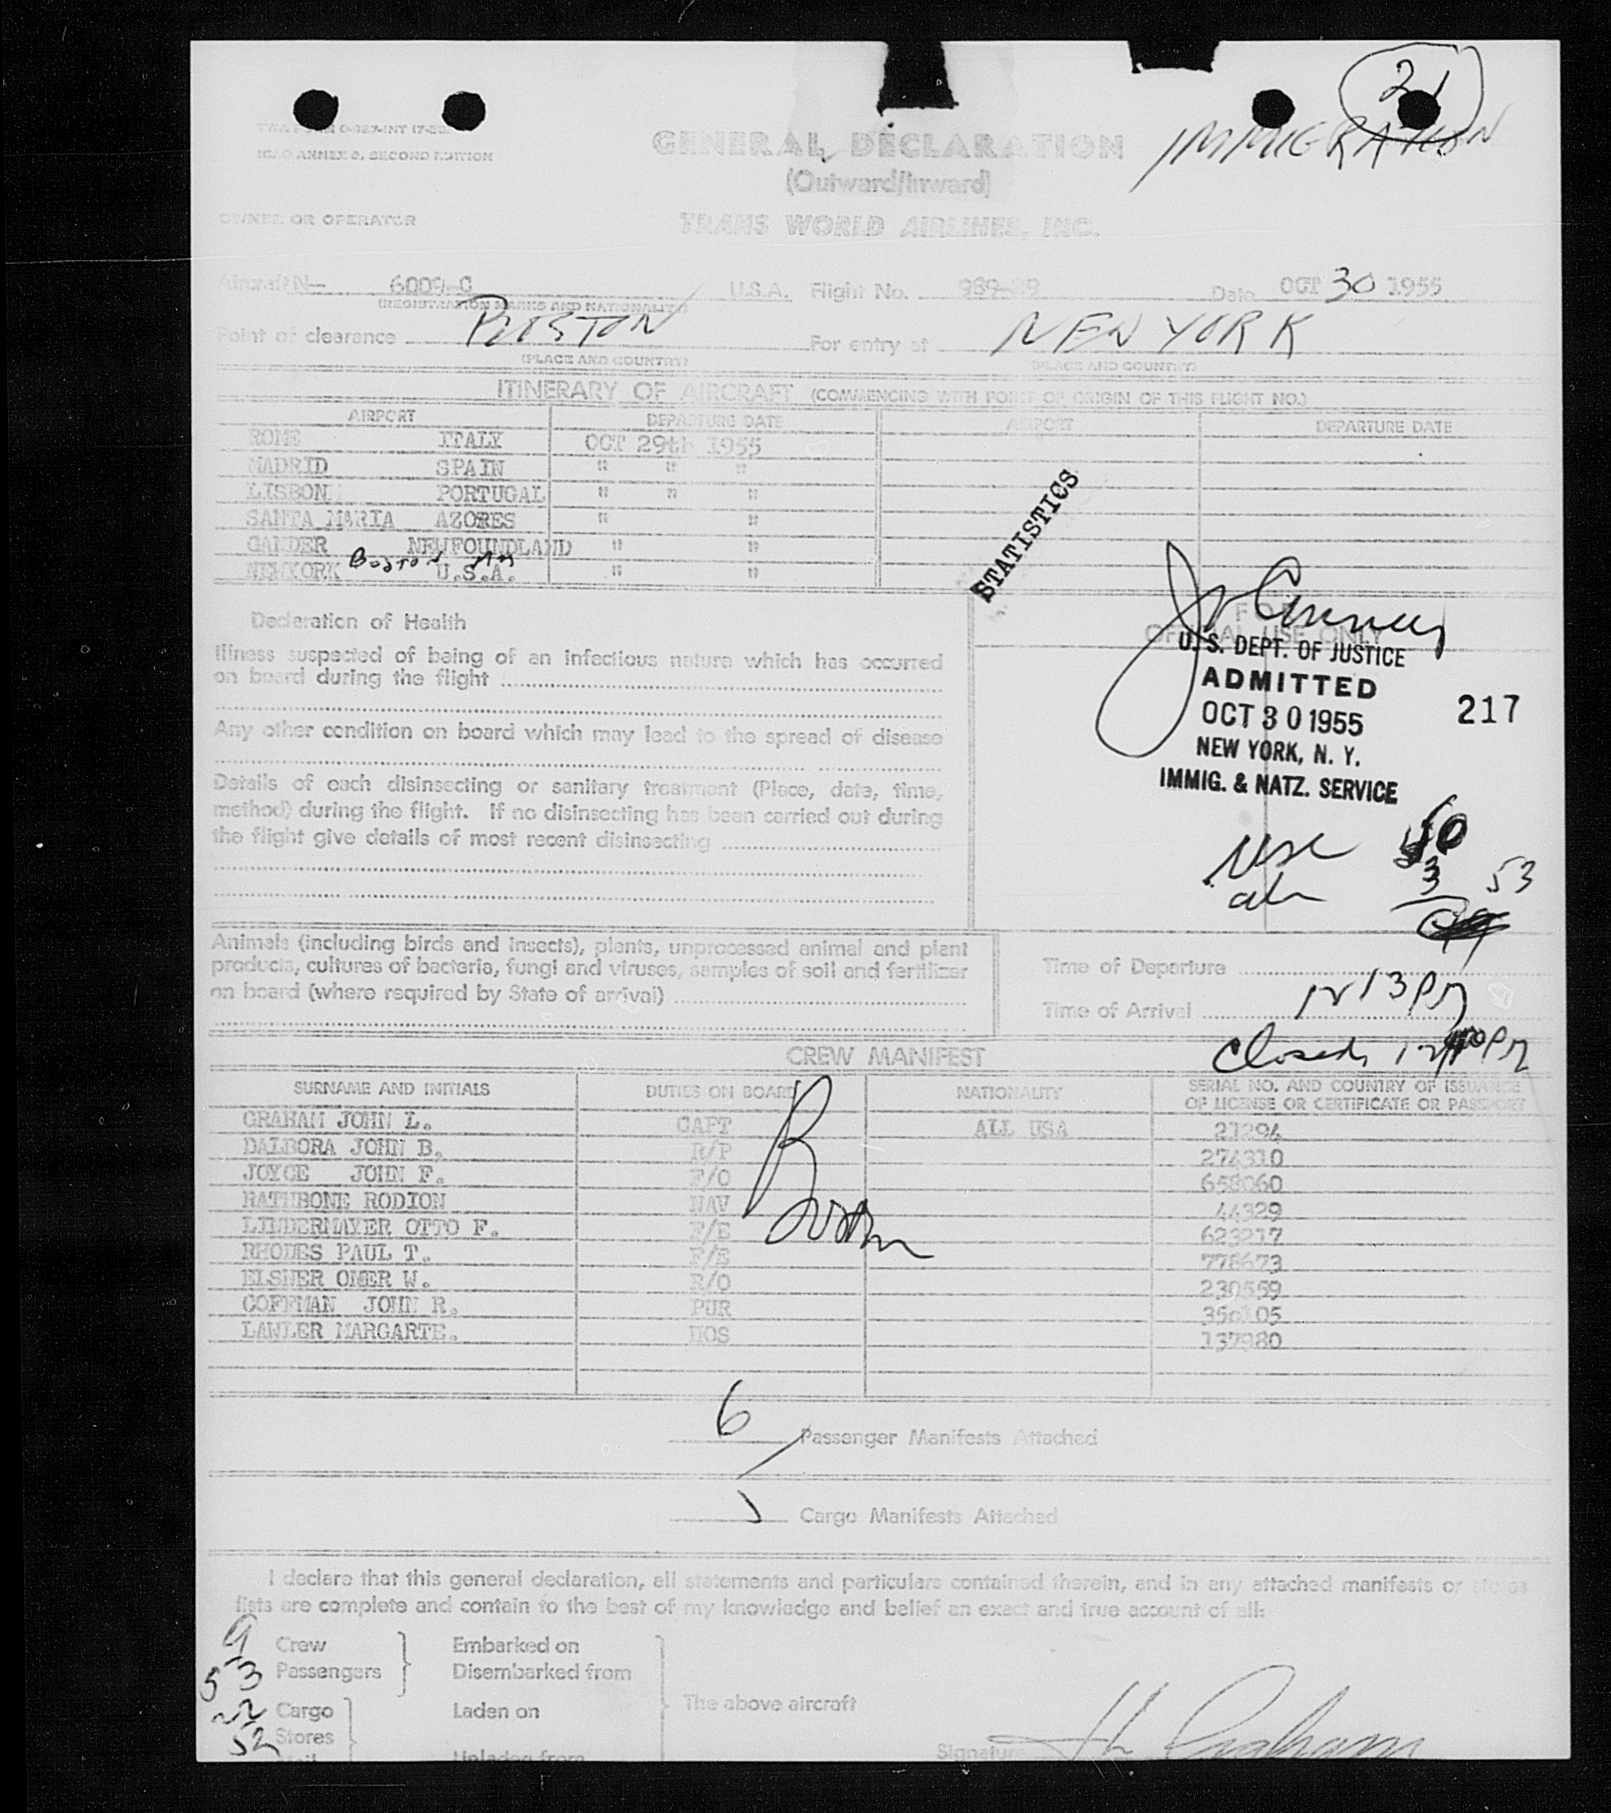 21
IMMIGRATION
ICAO ANNEX 9, SECOND EDITION
GENERAL DECLARATION
(Outward/Inward)
OWNER OR OPERATOR
TRANS WORLD AIRLINES, INC.
Aircraft N— 6009-C U.S.A. Flight No. Date OCT 30 1955
(REGISTRATION MARKS AND NATIONALITY)
Point of clearance BOSTON For entry at NEW YORK
(PLACE AND COUNTRY) (PLACE AND COUNTRY)
ITINERARY OF AIRCRAFT (COMMENCING WITH POINT OF ORIGIN OF THIS FLIGHT NO.)
AIRPORT DEPARTURE DATE AIRPORT DEPARTURE DATE
ROME ITALY OCT 29th 1955
MADRID SPAIN " " "
LISBON PORTUGAL " " "
SANTA MARIA AZORES " "
GANDER NEWFOUNDLAND " "
Boston
NEWYORK U.S.A. " "
STATISTICS
Declaration of Health
FOR
OFFICIAL USE ONLY
Illness suspected of being of an infectious nature which has occurred
on board during the flight
Any other condition on board which may lead to the spread of disease
Details of each disinsecting or sanitary treatment (Place, date, time,
method) during the flight. If no disinsecting has been carried out during
the flight give details of most recent disinsecting
U. S. DEPT. OF JUSTICE
ADMITTED
OCT 30 1955
NEW YORK, N. Y.
IMMIG. & NATZ. SERVICE
217
usc 50
al 3 53
Animals (including birds and insects), plants, unprocessed animal and plant
products, cultures of bacteria, fungi and viruses, samples of soil and fertilizer
on board (where required by State of arrival)
Time of Departure
Time of Arrival 1213PM
Closed
CREW MANIFEST
SURNAME AND INITIALS DUTIES ON BOARD NATIONALITY SERIAL NO. AND COUNTRY OF ISSUANCE
OF LICENSE OR CERTIFICATE OR PASSPORT
GRAHAM JOHN L. CAPT ALL USA 21294
DALBORA JOHN B. R/P 274310
JOYCE JOHN F. F/O 658060
RATHBONE RODION NAV 44329
LINDERMAYER OTTO F. F/E 623217
RHODES PAUL T. F/E 778673
ELSNER OMER W. R/O 230559
COFFMAN JOHN R. PUR 350105
LAWLER MARGARTE. HOS 137980
Boston
6 Passenger Manifests Attached
Cargo Manifests Attached
I declare that this general declaration, all statements and particulars contained therein, and in any attached manifests or stores
lists are complete and contain to the best of my knowledge and belief an exact and true account of all:
9 Crew Embarked on
53 Passengers Disembarked from
22 Cargo Laden on
The above aircraft
52 Stores
Mail Unladen from
Signature JL Graham